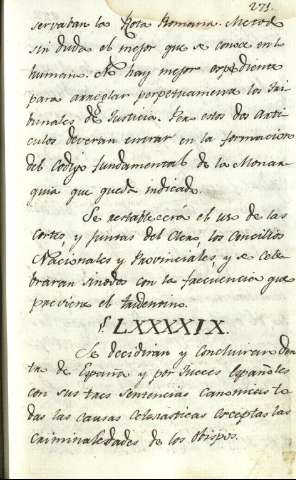 271.
servaban la Rota Romana. Metodo
sin duda el mejor que se conoce en lo
humano. No hay mejor expediente
para arreglar perpetuamente los tri-
bunales de Justicia. Por estos dos Arti-
culos deveran entrar en la formacion
del Codigo fundamental de la Monar-
quia que queda indicado.
Se restablecerá el uso de las
Cortes, y Juntas del Clero, los Concilios
Nacionales y Provinciales, y se cele-
braran sinodos con la frecuencia que
previene el Tridentino.
§ LXXXXIX.
Se decidiran y concluiran den-
tro de España y por Jueces Españoles
con sus tres sentencias canonicas to-
das las causas eclesiasticas exceptas las
criminalidades de los Obispos.